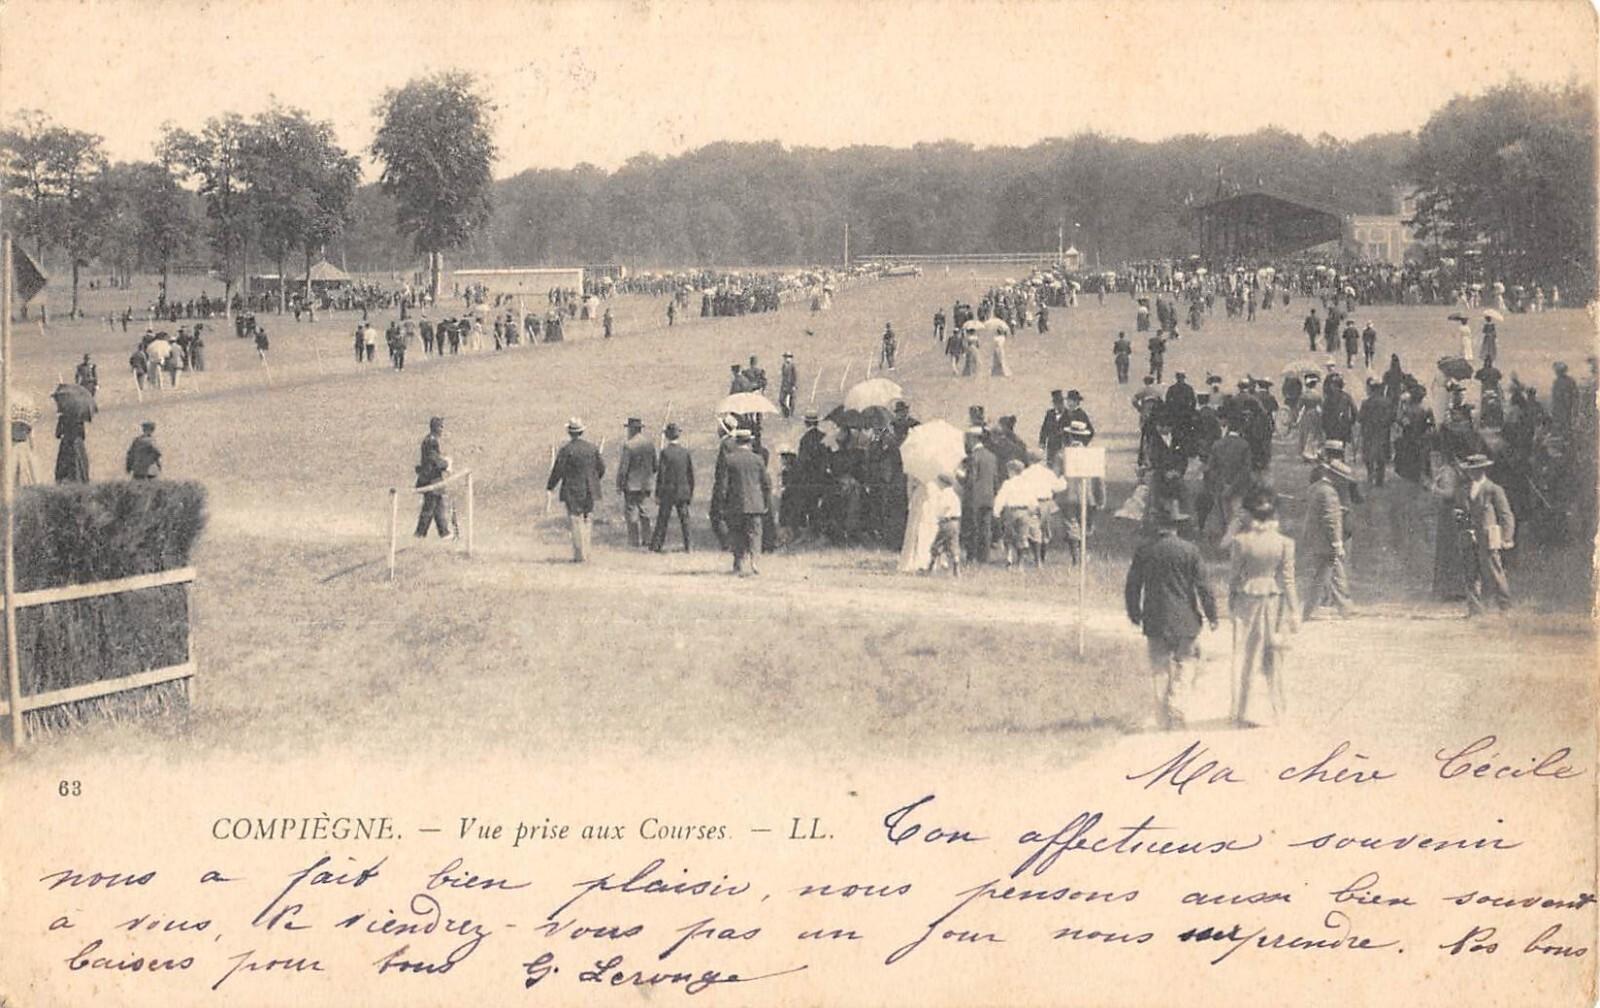 63
COMPIÈGNE. — Vue prise aux Courses. — LL.
Ma chère Cécile
Ton affectueux souvenir
nous a fait bien plaisir, nous pensons aussi bien souvent
à vous, Ne viendrez-vous pas un jour nous surprendre. Nos bons
baisers pour tous G.